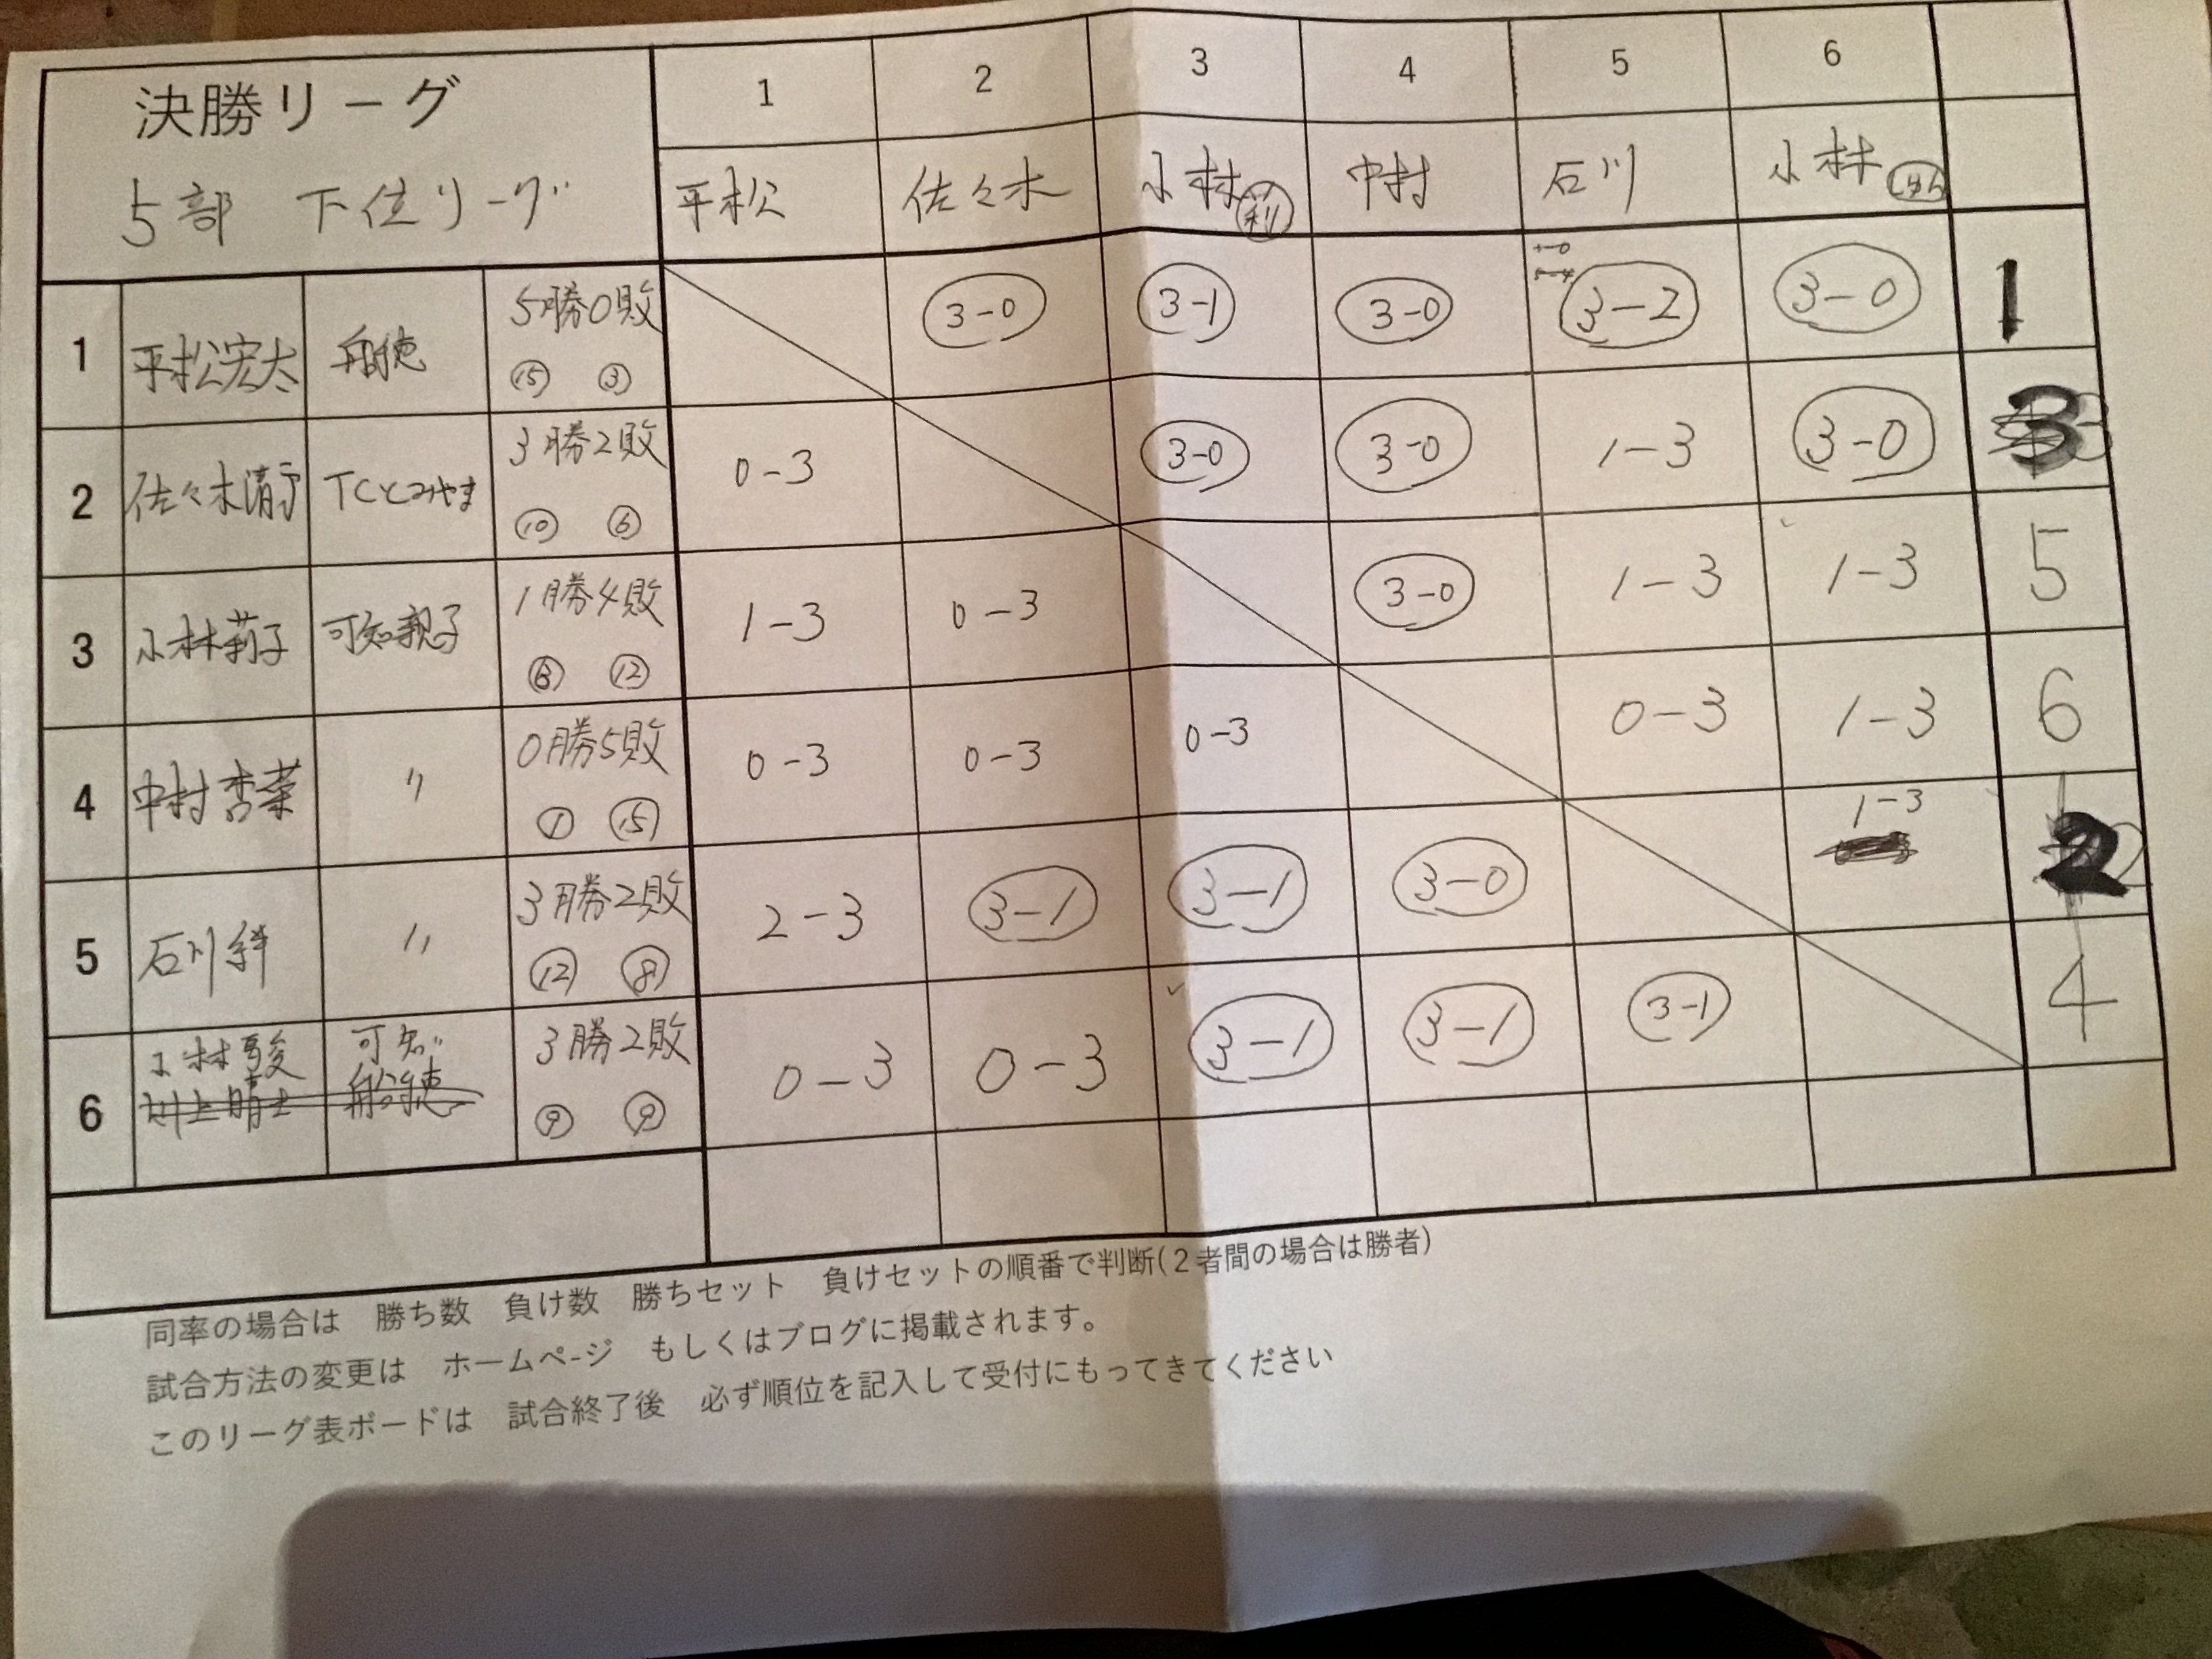 決勝リーグ
5部 下位リーグ
1 2 3 4 5 6
平松 佐々木 小林 莉 中村 石川 小林
1 平松宏太 船徳 5勝0敗 3-0 3-1 3-0 3-2 3-0 1
⑮ ③
2 佐々木清守 TCとみやま 3勝2敗 0-3 3-0 3-0 1-3 3-0 3
⑩ ⑥
3 小林莉子 可知親子 1勝4敗 1-3 0-3 3-0 1-3 1-3 5
⑫
4 中村杏菜 〃 0勝5敗 0-3 0-3 0-3 0-3 1-3 6
① ⑮
5 石川絆 〃 3勝2敗 2-3 3-1 3-1 3-0 1-3 2
⑫ ⑧
6 小林駿 可知 3勝2敗 0-3 0-3 3-1 3-1 3-1 4
川上晴士 船徳
⑨ ⑨
同率の場合は 勝ち数 負け数 勝ちセット 負けセットの順番で判断(2者間の場合は勝者)
試合方法の変更は ホームページ もしくはブログに掲載されます。
このリーグ表ボードは 試合終了後 必ず順位を記入して受付にもってきてください